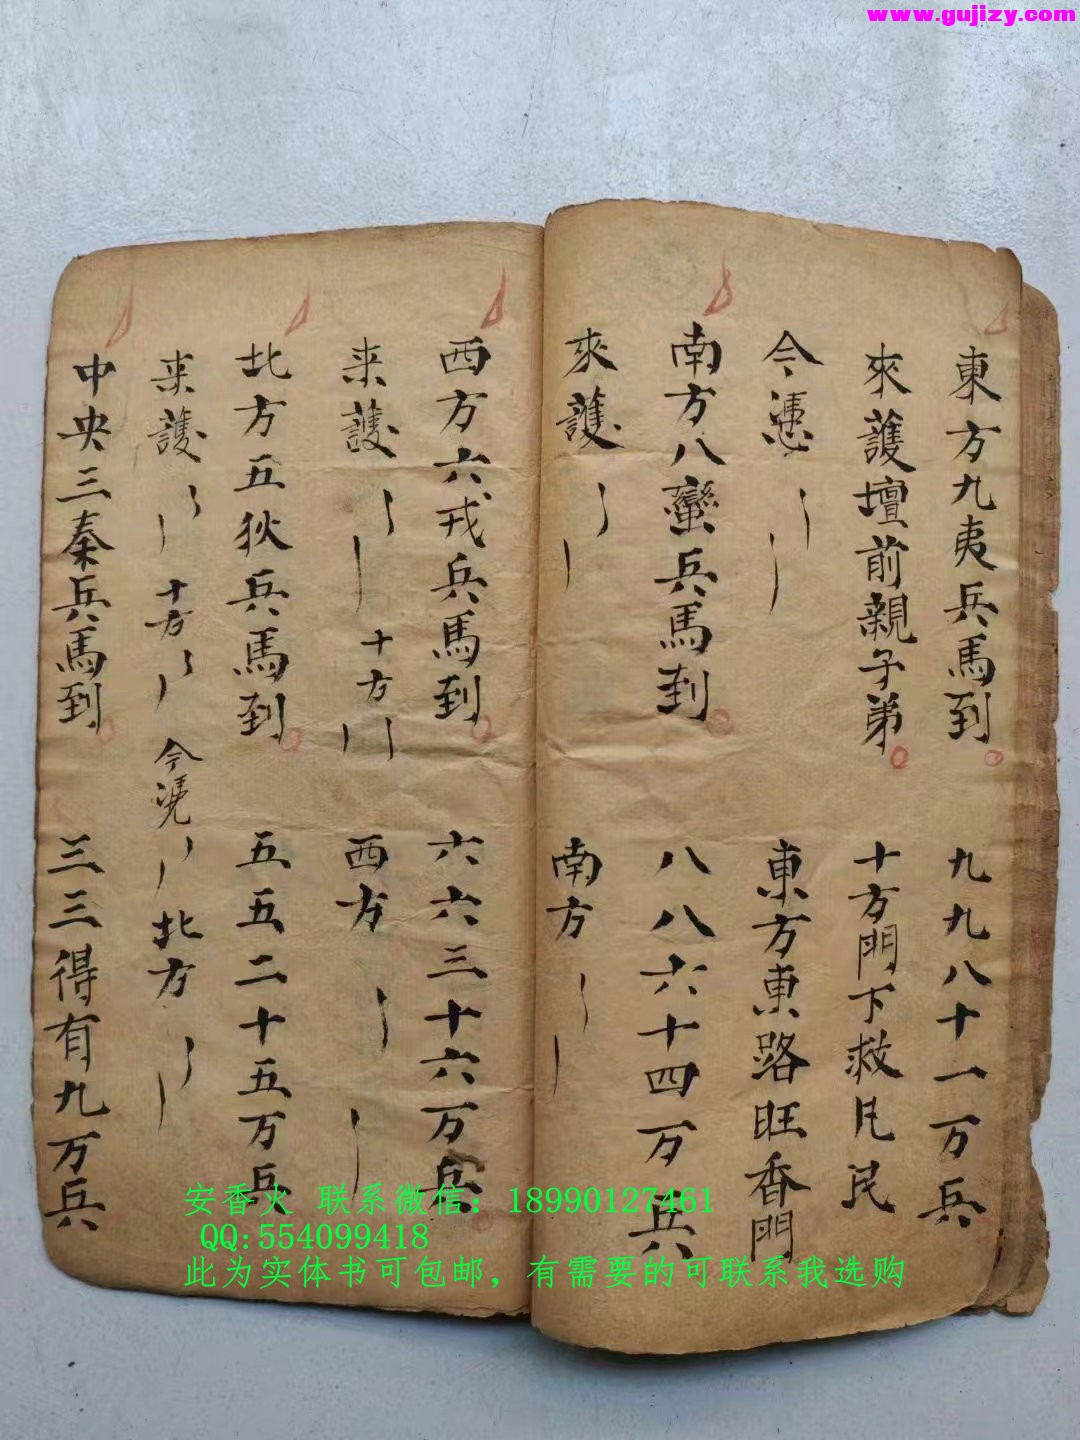 www.gujizy.com
東方九夷兵馬到 九九八十一万兵
來護壇前親子弟 十方門下救凡民
今憑 東方東路旺香門
南方八蠻兵馬到 八八六十四万兵
來護 南方
西方六戎兵馬到 六六三十六万兵
来護 十方 西方
北方五狄兵馬到 五五二十五万兵
来護 十方 今凴 北方
中央三秦兵馬到 三三得有九万兵
安香火 联系微信：18990127461
QQ:554099418
此为实体书可包邮，有需要的可联系我选购